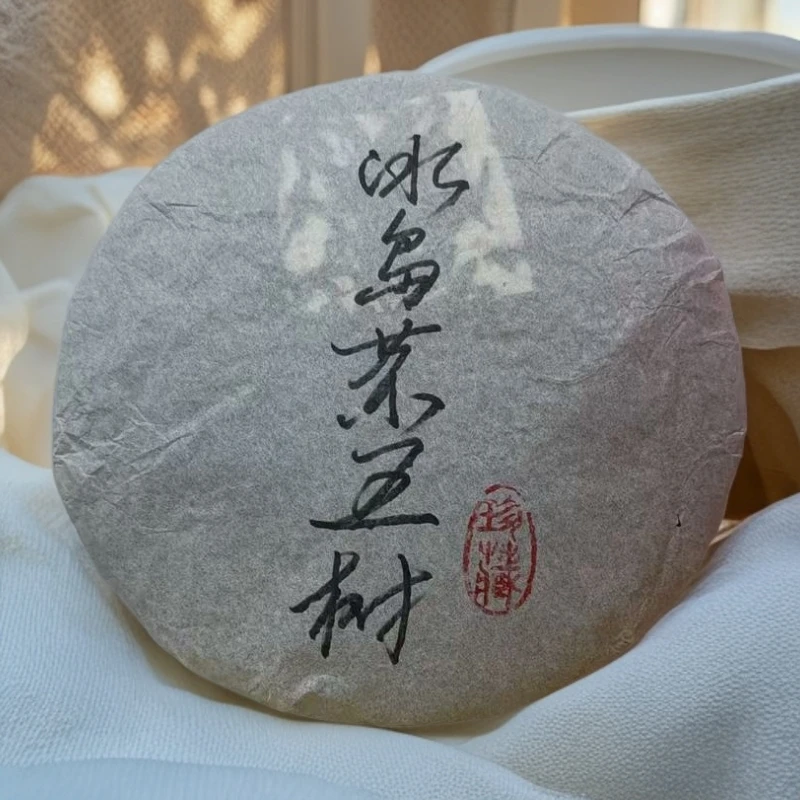 冰岛茶王树